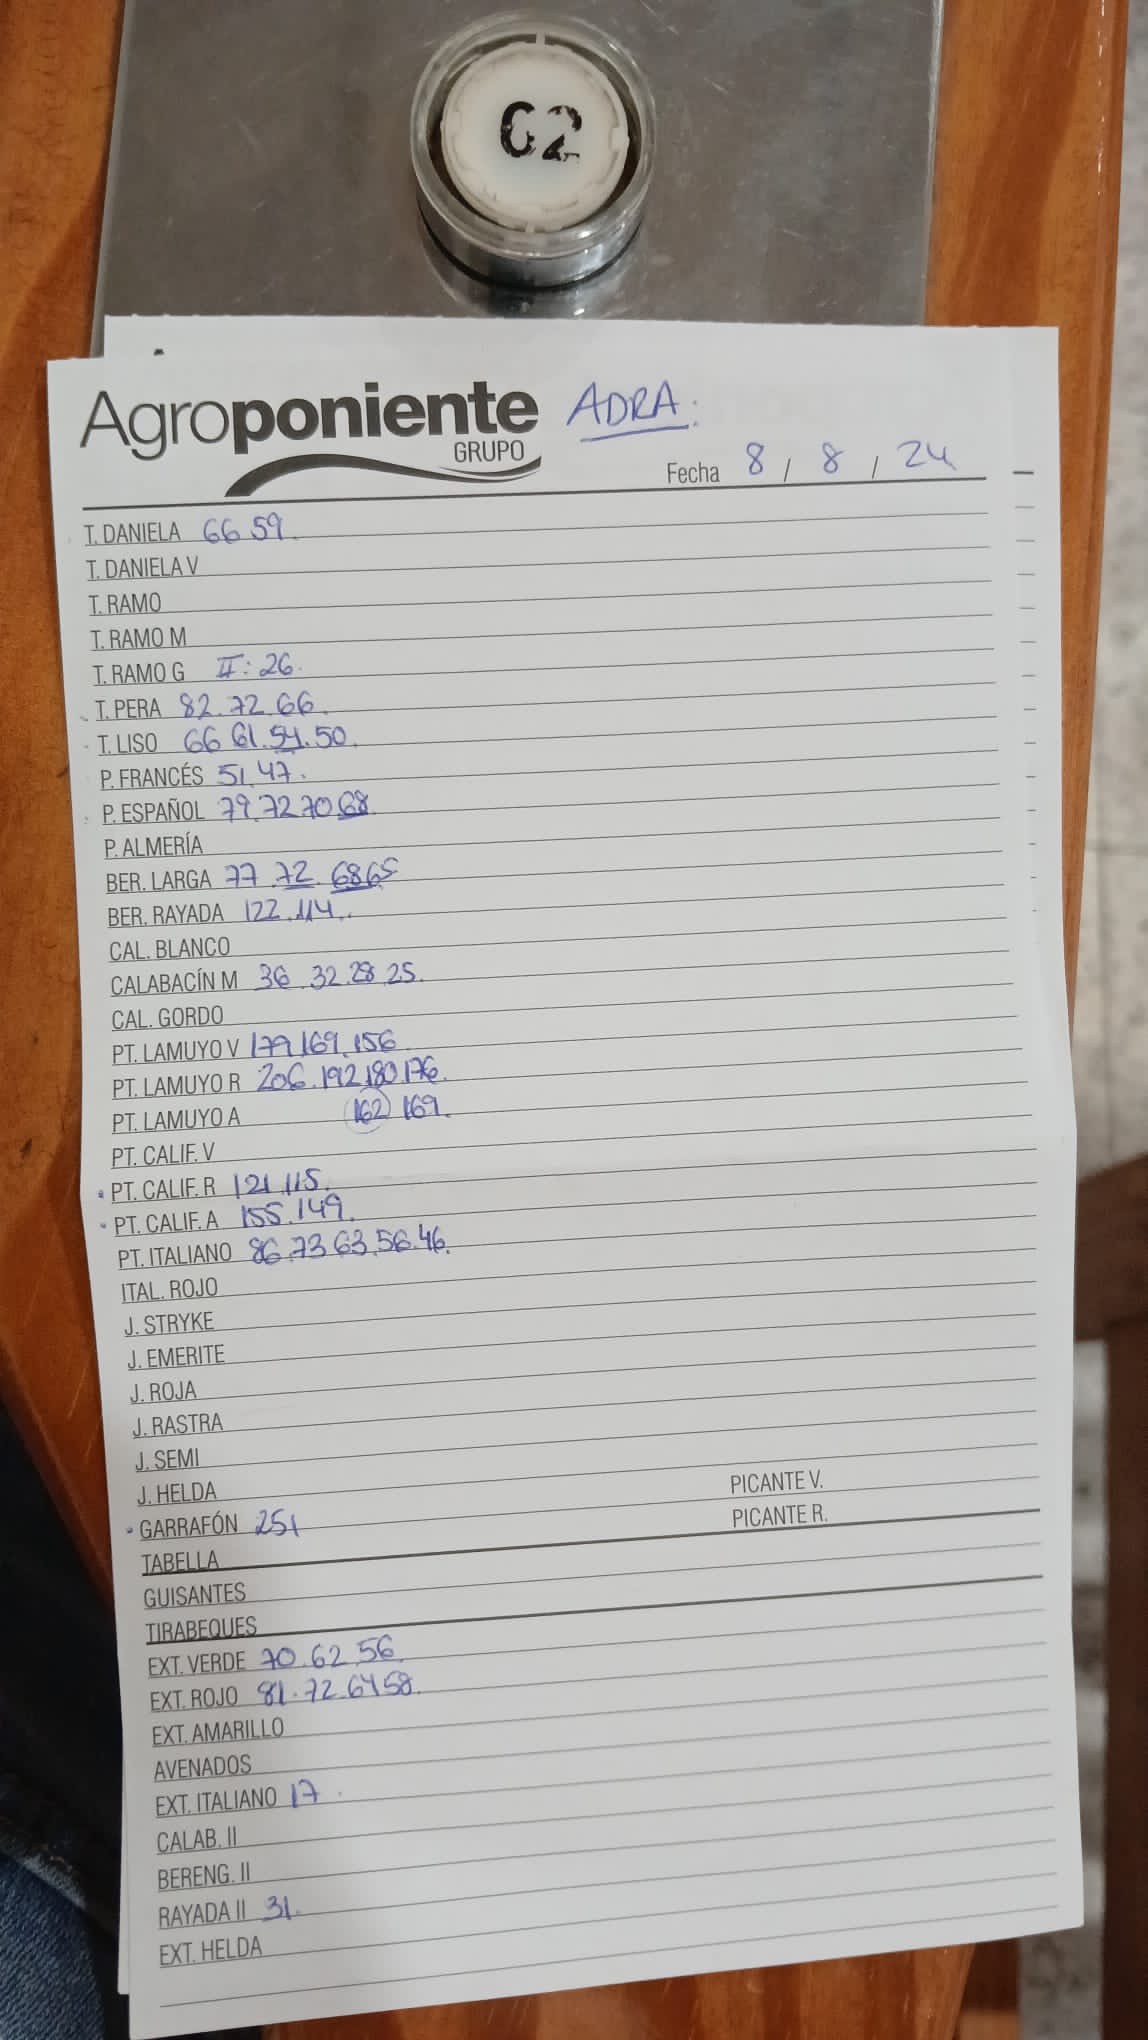 G2
Agroponiente
GRUPO
ADRA:
Fecha 8 / 8 / 24
T. DANIELA 66 59.
T. DANIELA V
T. RAMO
T. RAMO M
T. RAMO G II: 26.
T. PERA 82.72.66.
T. LISO 66 61.54.50.
P. FRANCÉS 51.47.
P. ESPAÑOL 79.72 70.68.
P. ALMERÍA
BER. LARGA 77.72.68 65
BER. RAYADA 122.114.
CAL. BLANCO
CALABACÍN M 36.32.28.25.
CAL. GORDO
PT. LAMUYO V 179.169.156
PT. LAMUYO R 206.192.180.176.
PT. LAMUYO A (162) 169.
PT. CALIF. V
PT. CALIF. R 121.115.
PT. CALIF. A 155.149.
PT. ITALIANO 86.73 63.56.46.
ITAL. ROJO
J. STRYKE
J. EMERITE
J. ROJA
J. RASTRA
J. SEMI
J. HELDA PICANTE V.
GARRAFÓN 251 PICANTE R.
TABELLA
GUISANTES
TIRABEQUES
EXT. VERDE 70.62.56.
EXT. ROJO 81.72.64 58.
EXT. AMARILLO
AVENADOS
EXT. ITALIANO 17.
CALAB. II
BERENG. II
RAYADA II 31.
EXT. HELDA